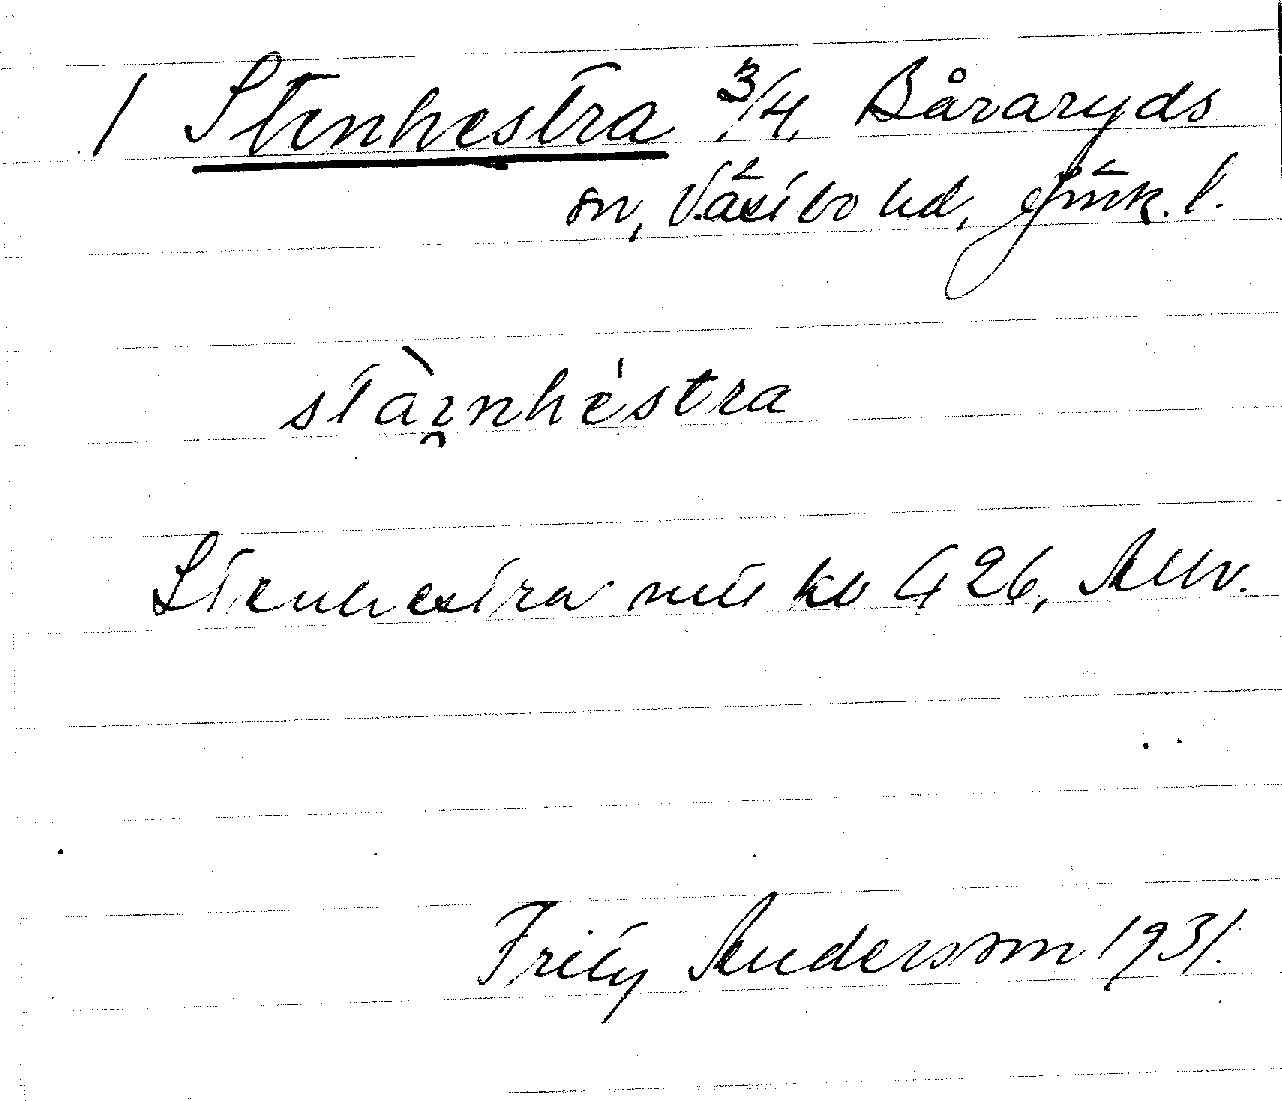 1 Stenhestra 3/4, Båraryds
sn, Västbo hd, Jönk. l.
stàɪ̯nhèstra
Stenhestra 426,
Fritz Andersson 1931.